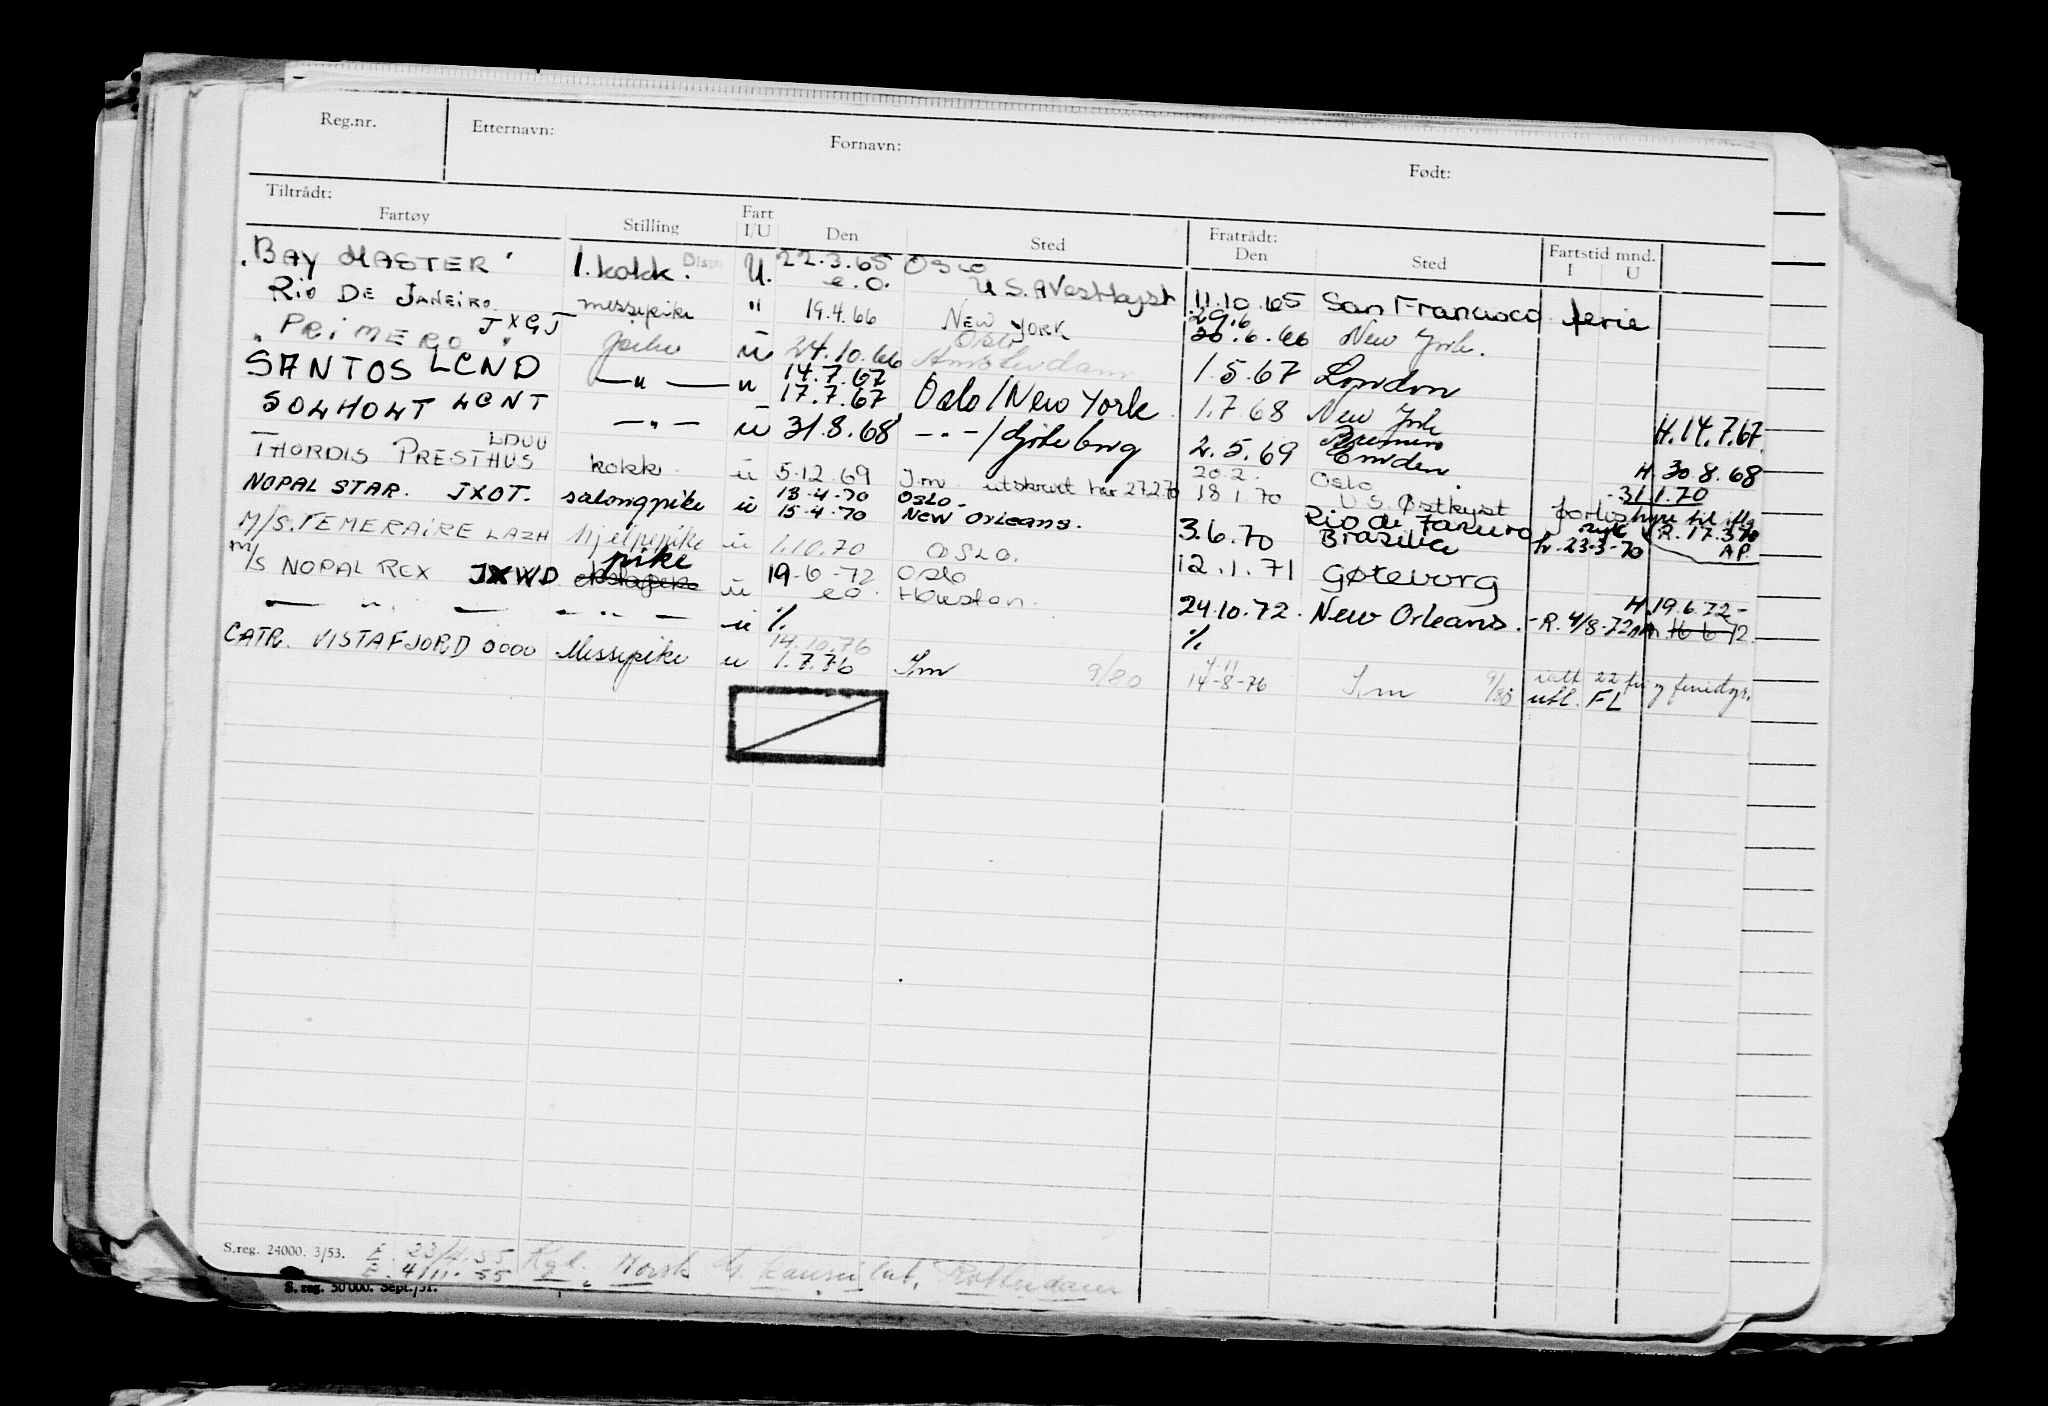 Reg.nr. Etternavn: Fornavn: Født:
Tiltrådt: Fratrådt:
Fartøy Stilling Fart I/U Den Sted Den Sted Fartstid mnd. I U
BAY MASTER 1. kokk. Disp. U. 22.3.65 OSLO
e.o. U.S.A Vestkyst 11.10.65 San Francisco ferie
RIO DE JANEIRO JXGJ messepike " 19.4.66 NEW YORK 29.6
30.6.66 New York.
PRIMERO " pike u 24.10.66 Oslo Amsterdam 1.5.67 London
SANTOS LCND —"— u 14.7.67
17.7.67 Oslo/New York 1.7.68 New York H.14.7.67.
SOLHOLT LCNT —"— u 31.8.68 —"—/Gøteborg 2.5.69 Bremen
Emden H 30.8.68
THORDIS PRESTHUS LDUU kokk u 5.12.69 I.m utskrevet 27.2.70 20.2.
18.1.70 Oslo - 31.1.70
U.S. Østkyst
NOPAL STAR. JXOT. salongpike u 13.4.70 OSLO -
15.4.70 NEW Orleans. 3.6.70 Rio de Janeiro
Brasilia 23-3-70 R.17.3.70
AP.
M/S. TEMERAIRE LAZH hjelpepike u 1.10.70 OSLO. 12.1.71 Gøteborg
M/S NOPAL REX JXWD pike u 19-6-72 Oslo
e.o. Houston. 24.10.72. New Orleans. - R. 4/8-72 H.19.6.72-
16 6 72.
— " — — " — u % %
CATR. VISTAFJORD 0000 Messepike u 14.10.76
1.7.76 I.m 9/80 4.11
14-8-76 I.m 9/80 ialt 22 fri og feriedgr.
utl. FL
S.reg. 24000. 3/53. E. 23/4.55 Kgl. Norsk G. Konsulat, Rotterdam
E. 4/11.55
S. reg. 50 000. Sept./51.